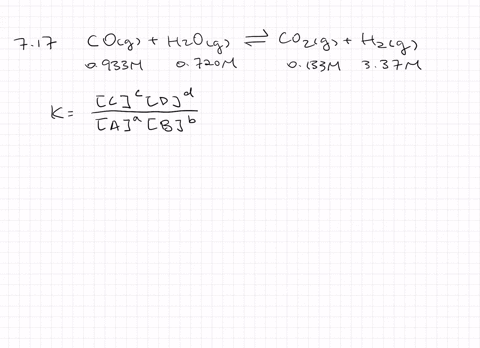 7.17 CO(g) + H2O(g) ⇌ CO2(g) + H2(g)
0.933M 0.720M 0.133M 3.37M
K = [C]^c [D]^d / [A]^a [B]^b